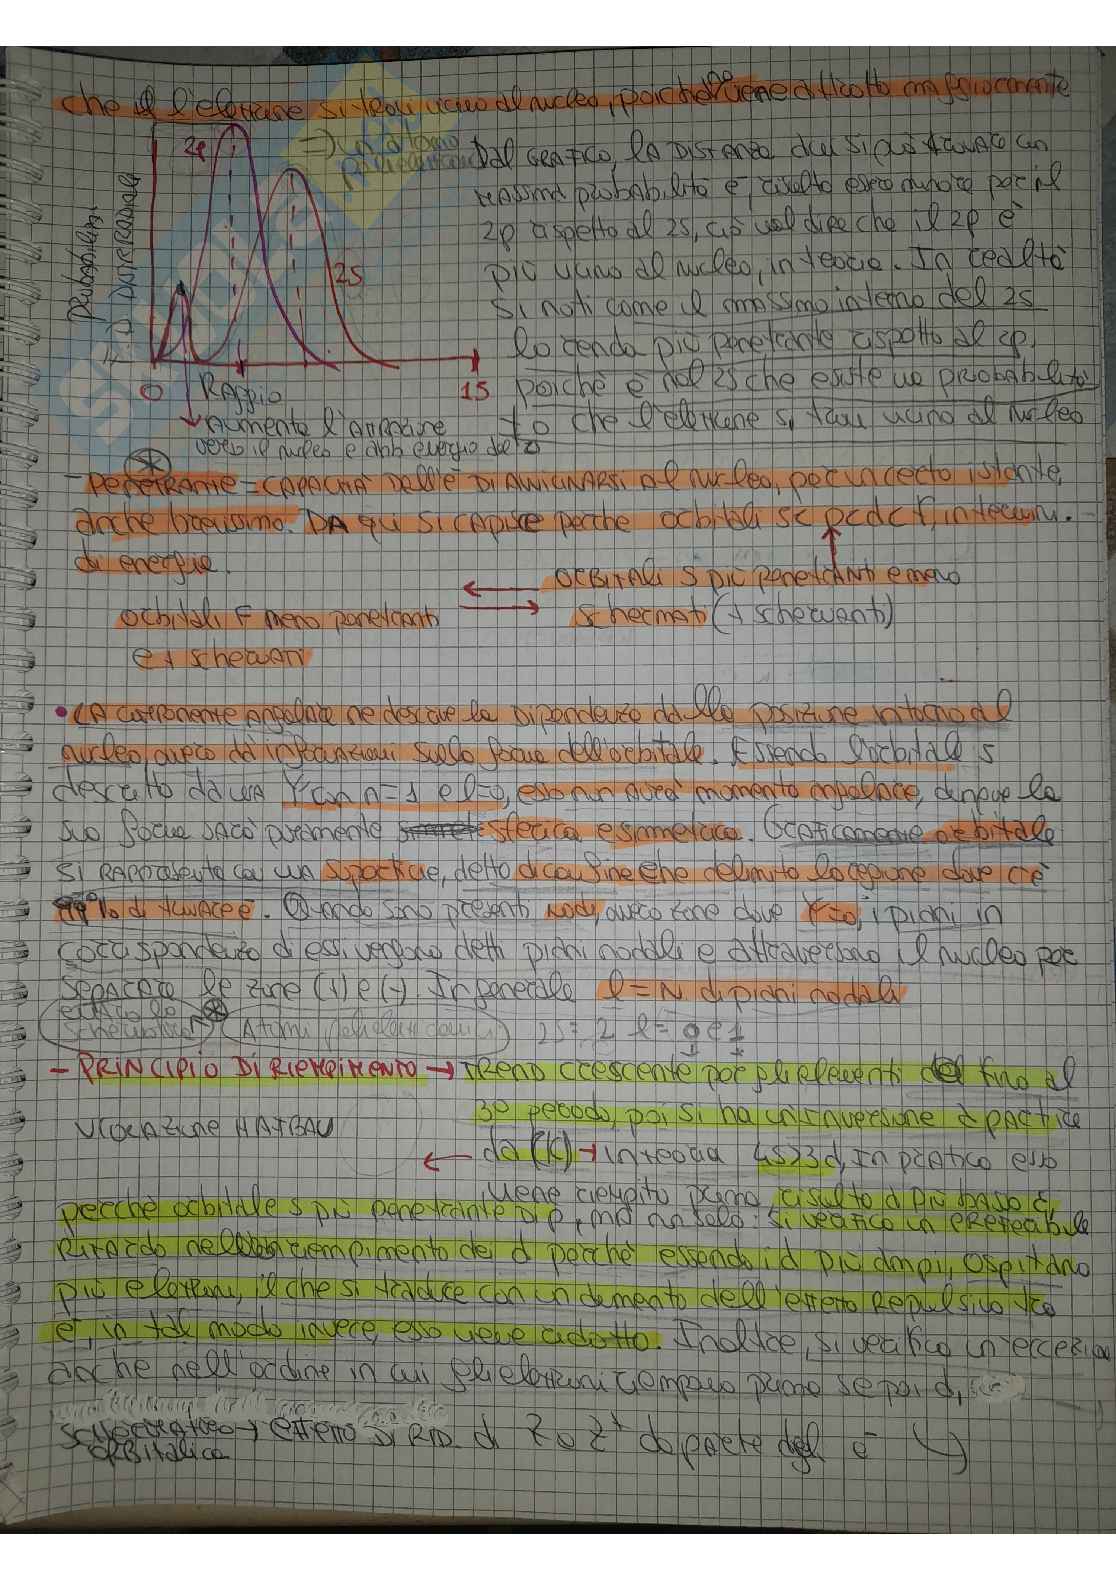 che il l'elettrone si trovi vicino al nucleo, poiché viene attratto maggiormente
2p
=> un atomo
Dal GRAFICO, la DISTANZA a cui si può trovare con
massima probabilità e⁻ risulta essere minore per il
2p rispetto al 2s, ciò vuol dire che il 2p è
più vicino al nucleo, in teoria. In realtà
2s
si noti come il massimo interno del 2s
lo renda più penetrante rispetto al 2p,
0 RAGGIO 15
poiché è nel 2s che esiste una probabilità
Probabilità
DI DISTR. RADIALE
≠0 che l'elettrone si trovi vicino al nucleo
Aumenta l'attrazione
verso il nucleo e abb energia del 2s
- PENETRANTE = CAPACITÀ DELL'e⁻ DI AVVICINARSI al nucleo, per un certo istante,
anche brevissimo. DA qui si capisce perché orbitali s< p<d< f, in termini
di energie.
ORBITALI S più PENETRANTI e meno
schermati (+ schermanti)
orbitali F meno penetranti
e + schermati
• LA componente angolare ne descrive la DIPENDENZA dalla posizione intorno al
nucleo, ovvero dà informazioni sulla forma dell'orbitale. Essendo l'orbitale s
descritto da una Y con n=1 e l=0, esso non avrà momento angolare, dunque la
sua forma sarà puramente sferica e simmetrica. Graficamente orbitale
si RAPPRESENTA con una superficie, detta di confine che delimita la regione dove c'è
% di trovare e⁻. Quando sono presenti nodi, ovvero zone dove Y=0, i piani in
corrispondenza di essi vengono detti piani nodali e attraversano il nucleo per
separare le zone (+) e (-). In generale l = N di piani nodali
effetto
schermatura Atomi 2s = 2 l= 0 e 1
- PRINCIPIO DI RIEMPIMENTO → TREND crescente per gli elementi fino al
3° periodo, poi si ha un'inversione a partire
VIOLAZIONE HAFBAU
da (K) → in teoria 4s>3d, in pratica esso
viene riempito prima, risulta a più bassa E,
perché orbitale s più penetrante DI p, ma non solo: si verifica un preferibile
RITARDO nel riempimento dei d perché essendo i d più ampi, ospitano
più elettroni, il che si traduce con un aumento dell'effetto REPULSIVO tra
e⁻, in tal modo invece, esso viene ridotto. Inoltre, si verifica un'eccezione
anche nell'ordine in cui gli elettroni riempono prima s e poi d,
schermatura → effetto DI RID. di Z o Z* da parte degl e⁻
ORBITALICA